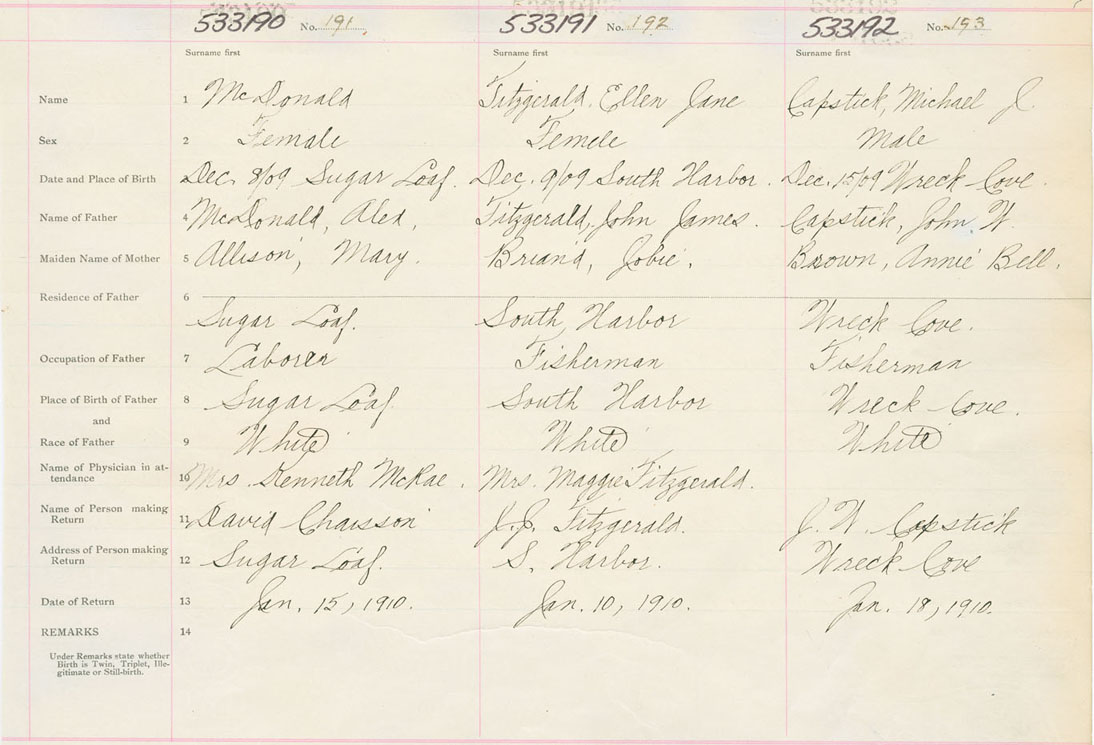 533190 No. 191 533191 No. 192 533192 No. 193
Surname first Surname first Surname first
Name 1 McDonald Fitzgerald, Ellen Jane Capstick, Michael J.
Sex 2 Female Female Male
Date and Place of Birth 3 Dec. 8/09 Sugar Loaf. Dec. 9/09 South Harbor. Dec. 15/09 Wreck Cove.
Name of Father 4 McDonald, Alex, Fitzgerald, John James. Capstick, John W.
Maiden Name of Mother 5 Allison, Mary. Briand, Jobie. Brown, Annie Bell.
Residence of Father 6
Sugar Loaf. South Harbor Wreck Cove.
Occupation of Father 7 Laborer Fisherman Fisherman
Place of Birth of Father 8 Sugar Loaf South Harbor Wreck Cove.
and
Race of Father 9 White White White
Name of Physician in at-
tendance 10 Mrs. Kenneth McRae. Mrs. Maggie Fitzgerald.
Name of Person making
Return 11 David Chaisson J.J. Fitzgerald. J. W. Capstick
Address of Person making
Return 12 Sugar Loaf. S. Harbor. Wreck Cove
Date of Return 13 Jan. 15, 1910. Jan. 10, 1910. Jan. 18, 1910.
REMARKS 14
Under Remarks state whether
Birth is Twin, Triplet, Ille-
gitimate or Still-birth.